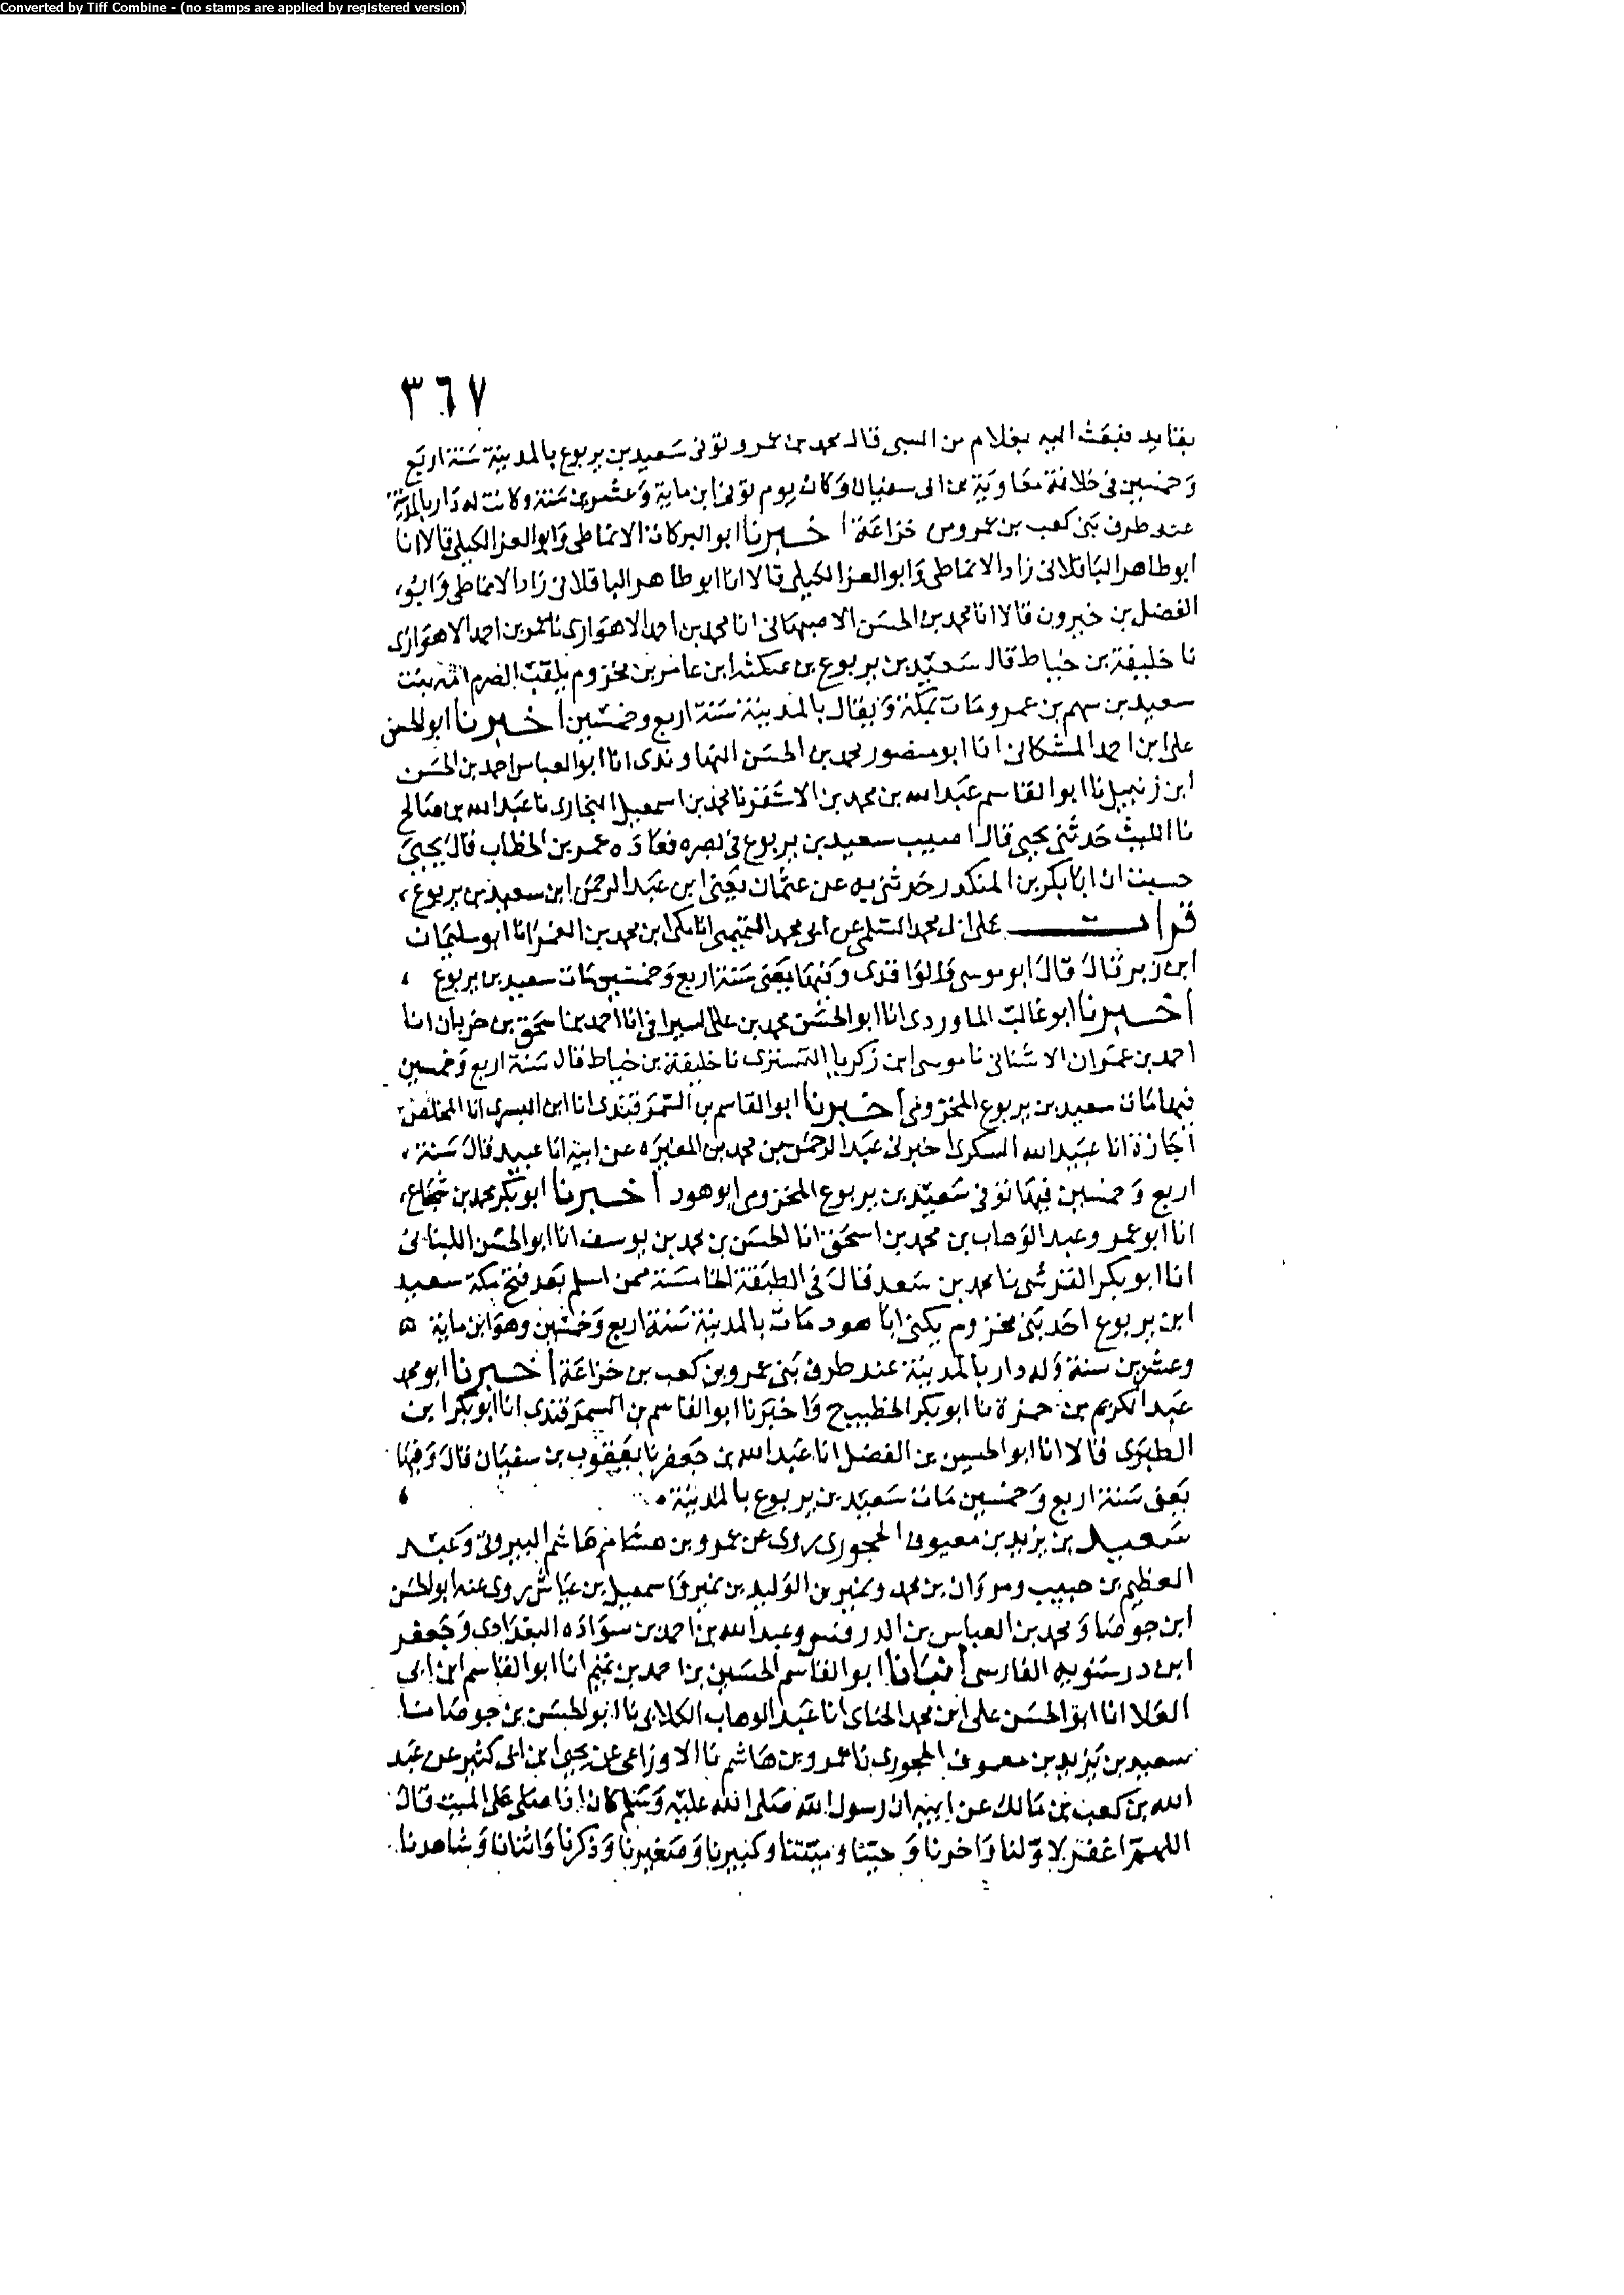 Converted by Tiff Combine - (no stamps are applied by registered version)
٣٦٧
بقايد فبعث اليه بغلام من السبى قال محمد بن عمرو توفى سعيد بن يربوع بالمدينة سنة اربع
وخمسين فى خلافة معاوية بن ابى سفيان وكان يوم توفى ابن ماية وعشرين سنة وكانت له دار بالمدينة
عند طرف بنى كعب بن عمرو من خزاعة اخبرنا ابو البركات الانماطى وابو العز الكيلى قالا انا
ابو طاهر الباقلانى زاد الانماطى وابو العز الكيلى قالا انا ابو طاهر الباقلانى زاد الانماطى وابو
الفضل بن خيرون قالا انا محمد بن الحسن الاصبهانى انا محمد بن احمد الاهوازى نا عمر بن احمد الاهوازى
نا خليفة بن خياط قال سعيد بن يربوع بن عنكثة ابن عامر بن مخزوم يلقب الصرم امه بنت
سعيد بن سهم بن عمرو مات بمكة ويقال بالمدينة سنة اربع وخمسين اخبرنا ابو الحسن
على ابن احمد المشكانى انا ابو منصور محمد بن الحسن النهاوندى انا ابو العباس احمد بن الحسن
ابن زنبيل نا ابو القاسم عبد الله بن محمد بن الاشقر نا محمد بن اسمعيل البخارى نا عبد الله بن صالح
نا الليث حدثنى يحيى قال اصيب سعيد بن يربوع فى بصره فعاده عمر بن الخطاب قال يحيى
حسبت ان ابا بكر بن المنكدر حدثنى به عن عثمان يعنى ابن عبد الرحمن ابن سعيد بن يربوع
قرات على ابى محمد السلمى عن ابى محمد التميمى انا مكى ابن محمد بن الغمر انا ابو سليمان
ابن زبر قال قال ابو موسى والواقدى وفيها يعنى سنة اربع وخمسين مات سعيد بن يربوع
اخبرنا ابو غالب الماوردى انا ابو الحسن محمد بن على السيرافى انا احمد بن اسحق بن خربان انا
احمد بن عمران الاشنانى نا موسى ابن زكريا التسترى نا خليفة بن خياط قال سنة اربع وخمسين
فيها مات سعيد بن يربوع المخزومى اخبرنا ابو القاسم بن السمرقندى انا ابن البسرى انا المخلص
اجازة انا عبيد الله السكرى اخبرنى عبد الرحمن بن محمد بن المغيره عن ابيه انا عبيد قال سنة
اربع وخمسين فيها توفى سعيد بن يربوع المخزومى ابو هود اخبرنا ابو بكر محمد بن شجاع
انا ابو عمرو عبد الوهاب بن محمد بن اسحق انا الحسن بن محمد بن يوسف انا ابو الحسن اللبنانى
انا ابو بكر القرشى نا محمد بن سعد قال فى الطبقة الخامسة ممن اسلم بعد فتح مكة سعيد
ابن يربوع احد بنى مخزوم يكنى ابا هود مات بالمدينة سنة اربع وخمسين وهو ابن ماية
وعشرين سنة وله دار بالمدينة عند طرف بنى عمرو بن كعب من خزاعة اخبرنا ابو محمد
عبد الكريم بن حمزة نا ابو بكر الخطيب ح واخبرنا ابو القاسم بن السمرقندى انا ابو بكر ابن
الطبرى قالا انا ابو الحسين بن الفضل انا عبد الله بن جعفر نا يعقوب بن سفيان قال وفيها
يعنى سنة اربع وخمسين مات سعيد بن يربوع بالمدينة
سعيد بن يزيد بن معيوف الحجورى روى عن عمرو بن هشام هاشم البيروتى وعبد
العظيم بن حبيب ومروان بن محمد ونمير بن الوليد بن نمير واسمعيل بن عياش روى عنه ابو الحسن
ابن جوصا ومحمد بن العباس بن الدرفس وعبد الله بن احمد بن سواده البغدادى وجعفر
ابن درستويه الفارسى انبانا ابو القاسم الحسين بن احمد بن تميم انا ابو القاسم ابن ابى
العلا انا ابو الحسن على ابن محمد الحناى انا عبد الوهاب الكلابى نا ابو الحسن بن جوصا نا
سعيد بن يزيد بن معيوف الحجورى نا عمرو بن هاشم نا الاوزاعى عن يحيى ابن ابى كثير عن عبد
الله بن كعب بن مالك عن ابيه ان رسول الله صلى الله عليه وسلم كان اذا صلى على الميت قال
اللهم اغفر لاولنا واخرنا وحينا وميتنا وكبيرنا وصغيرنا وذكرنا وانثانا وشاهدنا